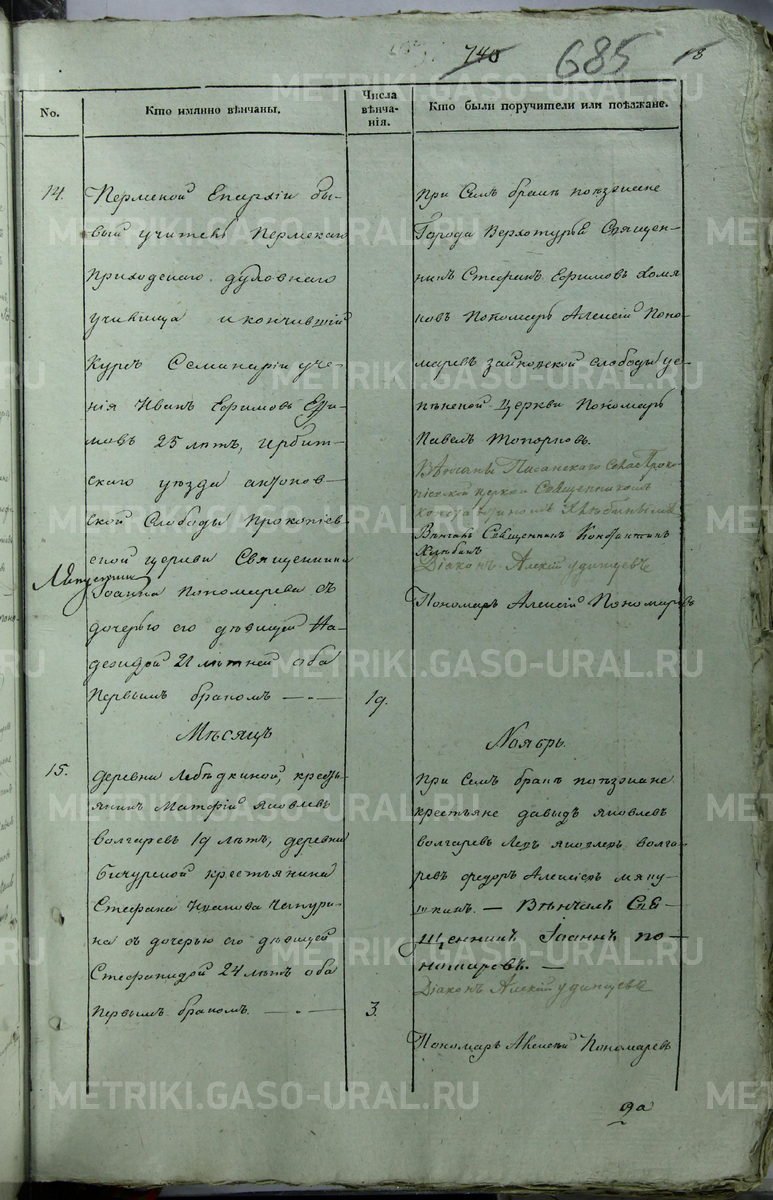 740 685
No.
Кто имянно вѣнчаны.
Числа вѣнча-нія.
Кто были поручители или поѣзжане.
14.
Пермской Епархіи бы-
вый учитель Пермскаго
приходскаго духовнаго
училища и кончившій
Курсъ Семинаріи уче-
нія Иванъ Ефимовъ
мовъ 25 лѣтъ, Ирбит-
скаго уѣзда антонов-
ской Слободы Прокопіев-
ской церкви Священника
Іоанна Пономарева съ
дочерью его дѣвицей На-
деждой 21 лѣтней оба
Первымъ бракомъ —
19.
При Семъ бракѣ поѣзжане
Города Верхотурья Священ-
никъ Стефанъ Ефимовъ Хомя
ковъ Пономарь Алексій Поно
маревъ зайковской слободы ус-
пѣнской церкви Пономарь
Павелъ Топорковъ.
Вѣнчаны Писанскаго Села Проко
піевской церкви Священникомъ
Константиномъ Хлѣбинымъ
Вѣнчалъ Священникъ Константинъ
Хлѣбинъ
Діаконъ Алексій Удинцевъ
Пономарь Алексій Пономаревъ
Мѣсяцъ
Ноябрь.
15.
Деревни Лебѣдкиной, кресть-
янинъ Матфій Яковлевъ
волгаревъ 19 лѣтъ, деревни
Бичурской крестьянина
Стефана Иванова Чепури-
на съ дочерью его дѣвицей
Стефанидой 24 лѣтъ оба
Первымъ бракомъ. —
3.
При Семъ бракѣ поѣзжане
крестьяне давидъ Яковлевъ
волгаревъ Левъ Яковлевъ волга-
ревъ федоръ Алексіевъ мяку-
шкинъ. — Вѣнчалъ Свя-
щенникъ Іоаннъ по-
номаревъ. —
Діаконъ Алексій Удинцевъ
Пономарь Алексій Пономаревъ
METRIKI.GASO-URAL.RU